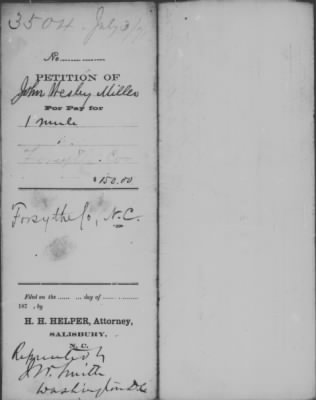 3504 July 3/7
No.
PETITION OF
John Wesley Miller
For Pay for
1 mule
Forsythe Co
$150.00
Forsythe Co, N.C.
Filed on the day of
187 , by
H. H. HELPER, Attorney,
SALISBURY,
N. C.
Represented by
J. W. Smith
Washington D.C.